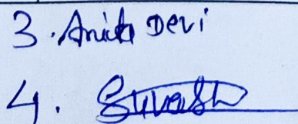 3. Anita Devi
4. Suvash